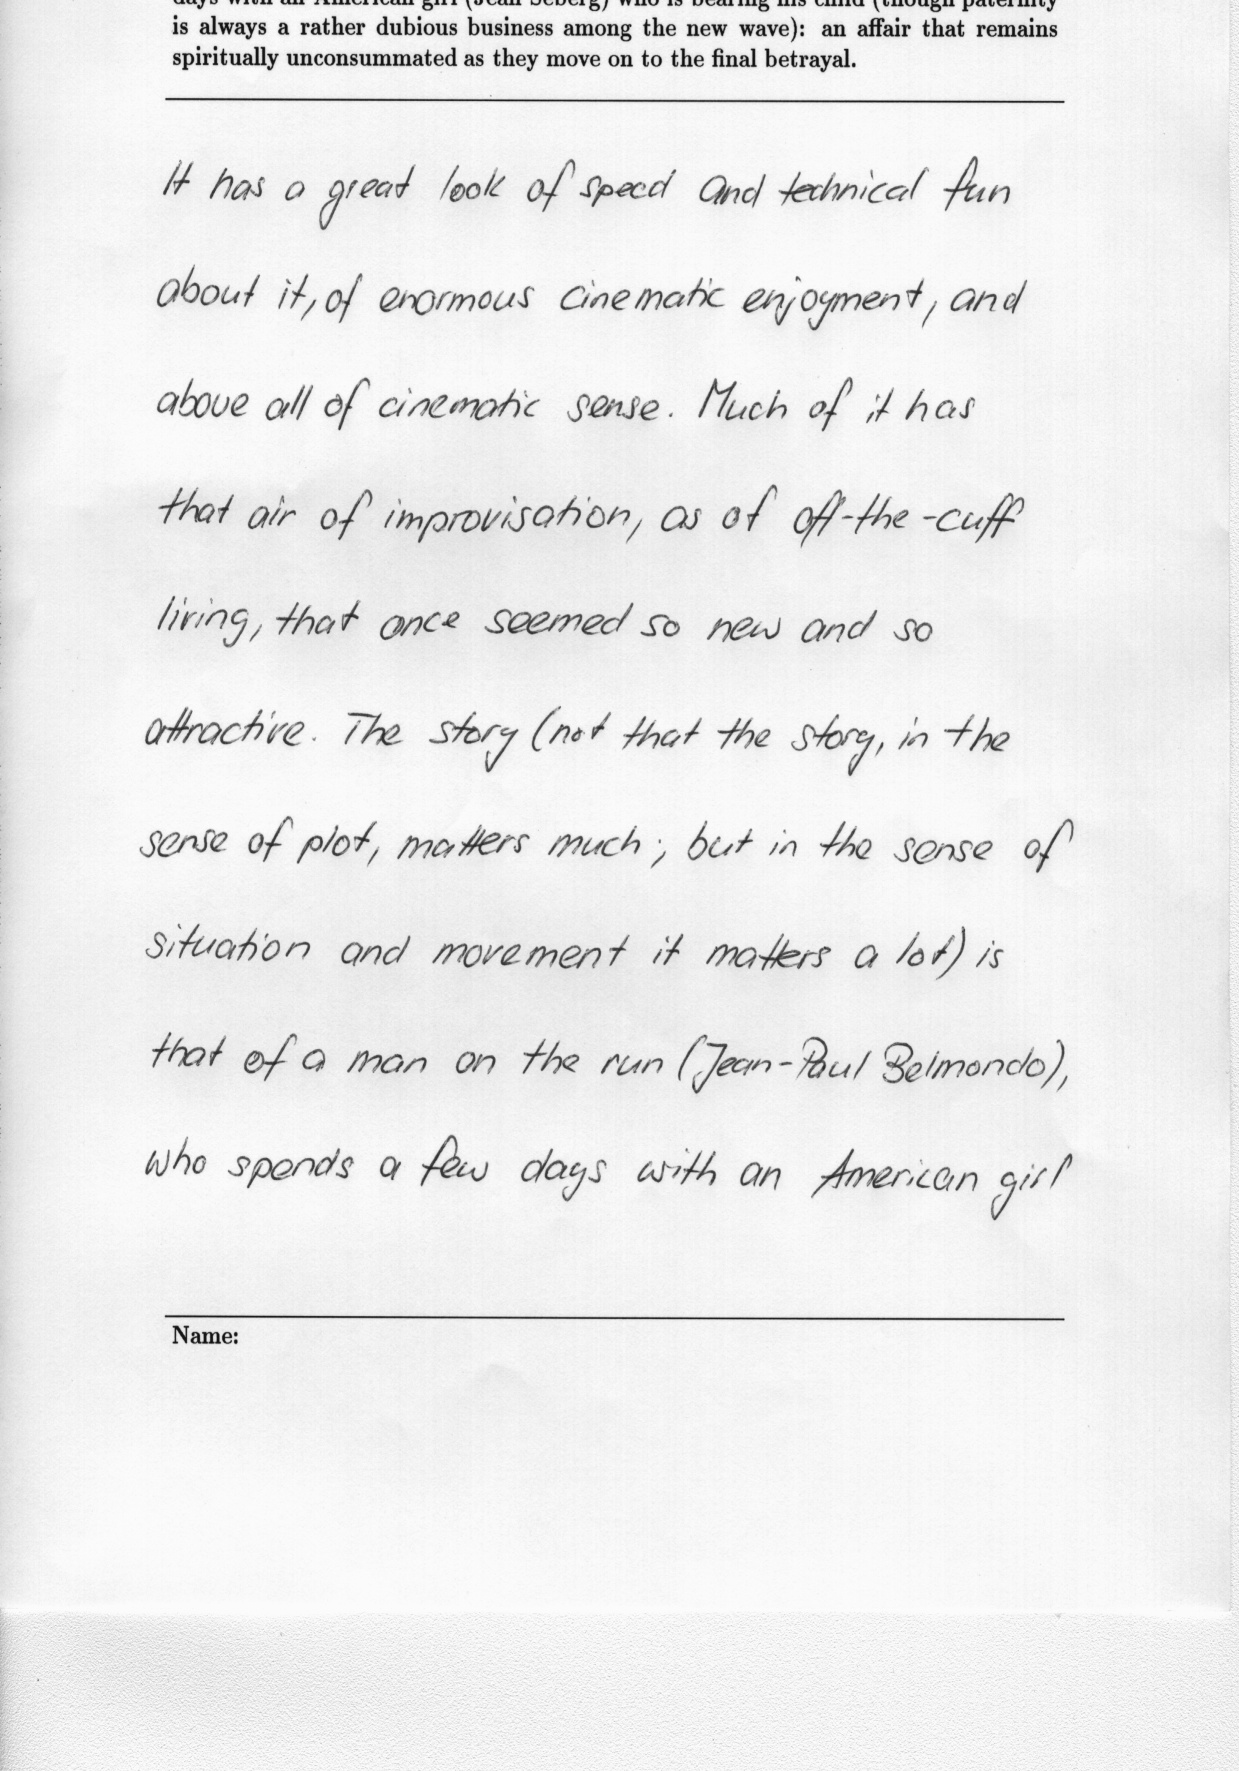 days with an American girl (Jean Seberg) who is bearing his child (though paternity
is always a rather dubious business among the new wave): an affair that remains
spiritually unconsummated as they move on to the final betrayal.
It has a great look of speed and technical fun
about it, of enormous cinematic enjoyment, and
above all of cinematic sense. Much of it has
that air of improvisation, as of off-the-cuff
living, that once seemed so new and so
attractive. The story (not that the story, in the
sense of plot, matters much; but in the sense of
situation and movement it matters a lot) is
that of a man on the run (Jean-Paul Belmondo),
who spends a few days with an American girl
Name: